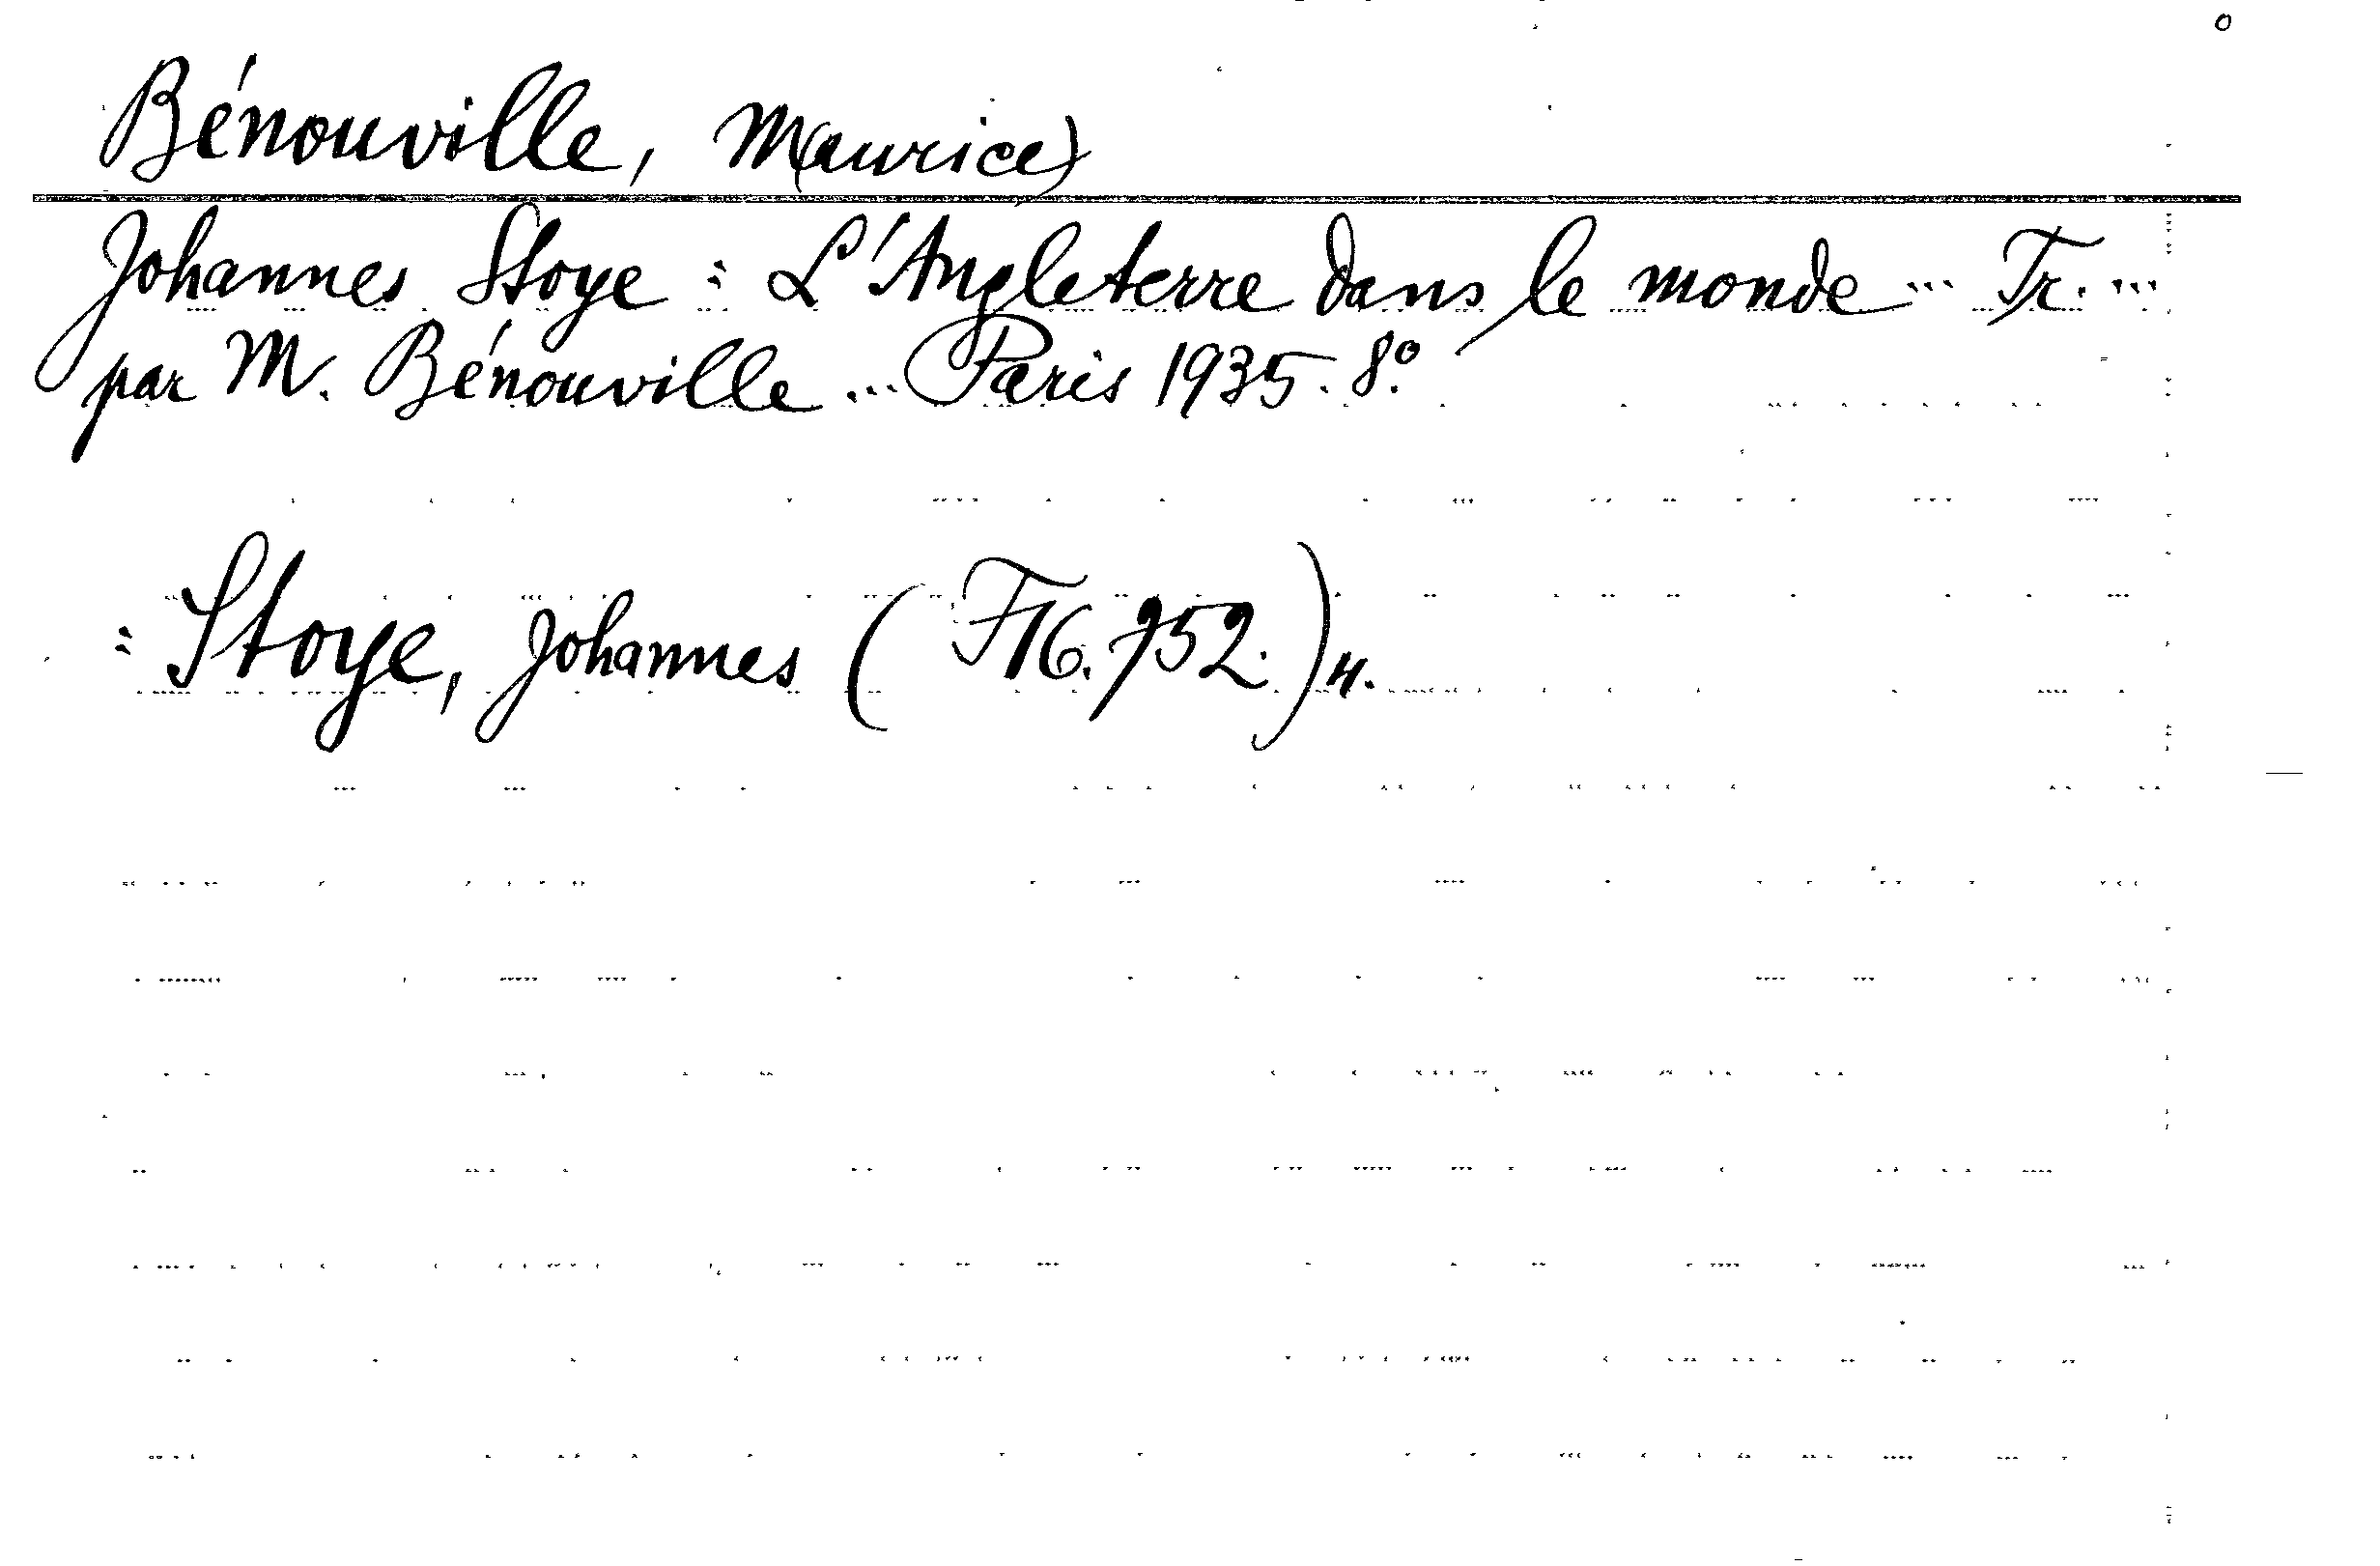 Bénouville, M(aurice)
Johannes Stoye : L'Angleterre dans le monde ... Tr. ...
par M. Bénouville ... Paris 1935. 8°.
: Stoye, Johannes ( F16.752.)